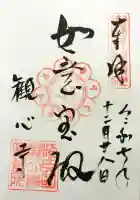 奉拝
令和七年
十二月廿八日
如意宝殿
観心寺